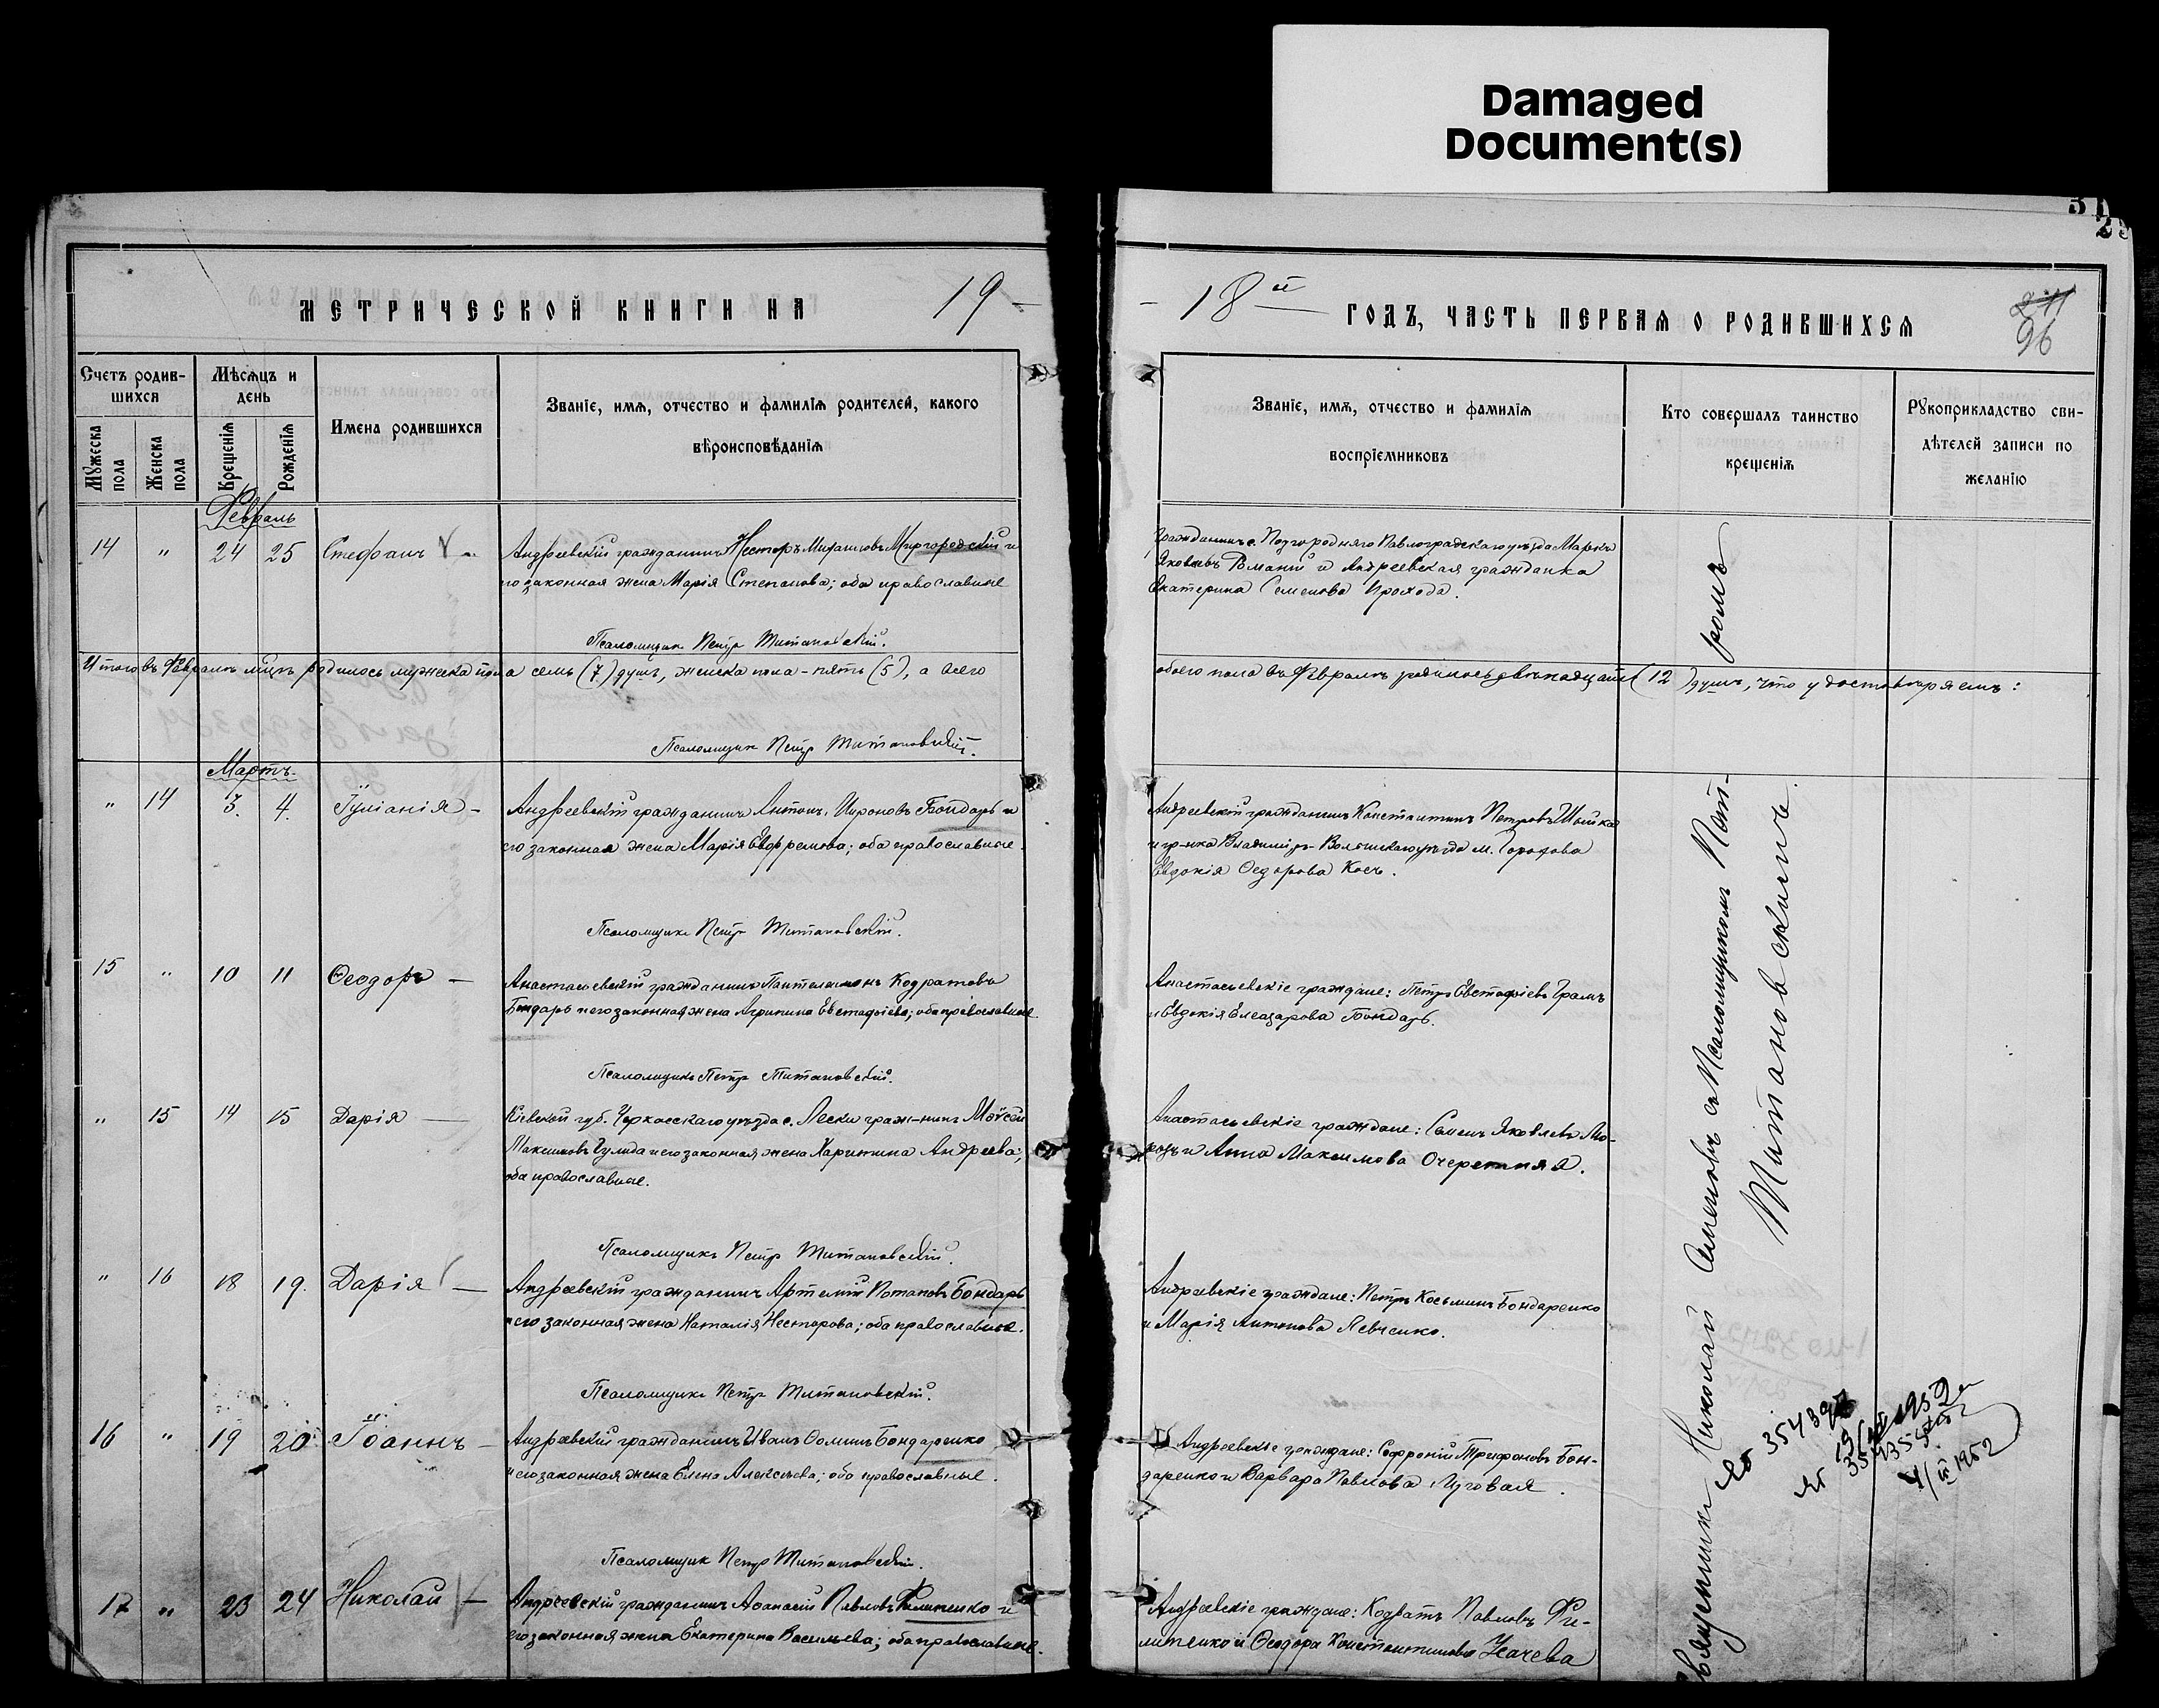 Damaged
Document(s)
МЕТРИЧЕСКОЙ КНИГИ НА 19 –
– 18 й ГОДЪ, ЧАСТЬ ПЕРВАЯ О РОДИВШИХСЯ
96
Счетъ родив-
шихся
Мужеска пола
Женска пола
Мѣсяцъ и
день
Крещенія
Рожденія
Имена родившихся
Званіе, имя, отчество и фамилія родителей, какого
вѣроисповѣданія
Званіе, имя, отчество и фамилія
воспріемниковъ
Кто совершалъ таинство
крещенія
Рукоприкладство сви-
дѣтелей записи по
желанію
Февраль
14 " 24 25 Стефанъ
Андреевскій гражданинъ Несторъ Михаиловъ Миргородскій и
его законная жена Марія Степанова; оба православные
Гражданинъ с. Подгородняго Павлоградскаго уѣзда Маркъ
Яковлевъ и Андреевская гражданка
Екатерина Семенова Прохода.
Псаломщикъ Петръ Титановскій.
Итого въ Февралѣ м-цѣ родилось мужеска пола семь (7) душъ, женска пола – пять (5), а всего
обоего пола въ Февралѣ родилось двѣнадцать (12) душъ, что удостовѣряемъ:
Псаломщикъ Петръ Титановскій.
Мартъ
" 14 3. 4. Іуліанія –
Андреевскій гражданинъ Антонъ Мироновъ Бондарь и
его законная жена Марія Евфремова; оба православные.
Андреевскій гражданинъ Константинъ Петровъ
и гр-нка Владиміръ-Волынскаго уѣзда м. Горохова
Евдокія Ѳедорова Косъ.
Псаломщикъ Петръ Титановскій.
15 " 10 11 Ѳеодоръ –
Анастасьевскій гражданинъ Пантелеимонъ Кодратовъ
Бондарь и его законная жена Агрипина Евстафіева; оба православные.
Анастасьевскіе граждане: Петръ Евстафіевъ
и Евдокія Елеазарова Бондарь.
Псаломщикъ Петръ Титановскій.
" 15 14 15 Дарія –
Кіевской губ. Черкасскаго уѣзда с. Лески граж-нинъ Моѵсей
Максимовъ Гулида и его законная жена Харитина Андреева;
оба православные.
Анастасьевскіе граждане: Семенъ Яковлевъ Мо-
розъ и Анна Максимова Очеретняя.
Псаломщикъ Петръ Титановскій.
" 16 18 19. Дарія –
Андреевскій гражданинъ Артемій Потаповъ Бондарь
и его законная жена Наталія Несторова; оба православные.
Андреевскіе граждане: Петръ Косьминъ Бондаренко
и Марія Антонова Левченко.
Псаломщикъ Петръ Титановскій.
16 " 19 20 Іоаннъ –
Андреевскій гражданинъ Иванъ Ѳоминъ Бондаренко
и его законная жена Елена Алексѣева; оба православные.
Андреевскіе граждане: Софроній Трифоновъ Бон-
даренко и Варвара Павлова Луговая.
Псаломщикъ Петръ Титановскій.
17 " 23 24 Николай –
Андреевскій гражданинъ Аѳанасій Павловъ Филипенко и
его законная жена Екатерина Васильева; оба православные.
Андреевскіе граждане: Кодратъ Павловъ Фи-
липенко и Ѳеодора Константинова Усачева
Священникъ Николай Сименовъ съ Псаломщикомъ Пет-
ромъ Титановскимъ.